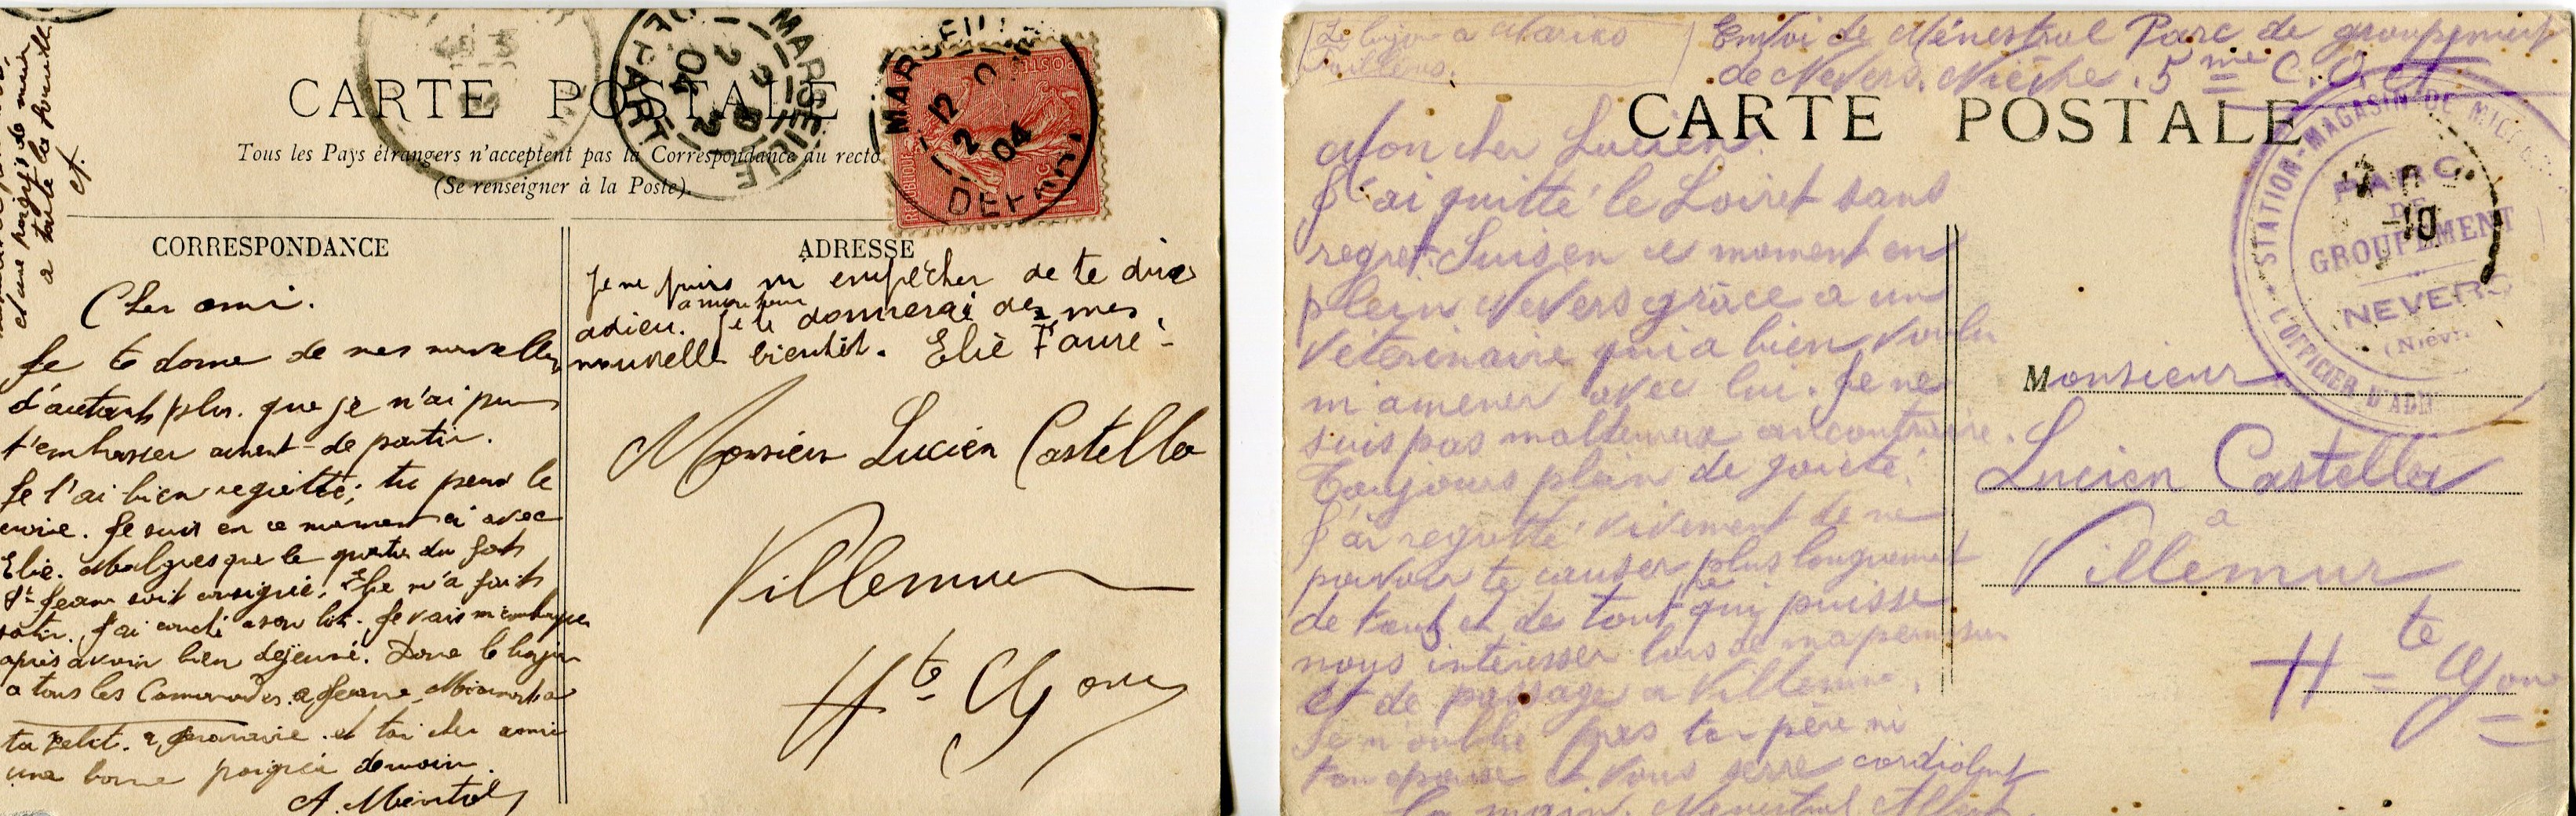 CARTE POSTALE
Tous les Pays étrangers n'acceptent pas la Correspondance au recto
(Se renseigner à la Poste).
CORRESPONDANCE
ADRESSE
et une poignée de main
a toute la famille
MARSEILLE
DEPART
12
2
04
Cher ami.
Je te donne de mes nouvelles
d'autant plus que je n'ai pu
t'embrasser avant de partir.
Je l'ai bien regretté; tu peux le
croire. Je suis en ce moment ci avec
Elie. Malgres que le quartier du fort
St Jean soit consigné, Elie m'a fait
sortir. J'ai couché a son lit. Je vais m'embarquer
après avoir bien dejeuné. Donne le bonjour
a tous les Camarades. a Jeanne
ta petit. et toi cher ami
une bonne poignée de main.
Je ne puis m'empêcher de te dire
adieu. Je te donnerai de mes
nouvelle bientôt. Elie Faure
Monsieur Lucien Castella
Villemur
Hte Gne
Envoi de Ménestral Parc de groupement
de Nevers. Nièvre. 5me C.
CARTE POSTALE
STATION-MAGASIN DE
L'OFFICIER D'ADM
PARC
DE
GROUPEMENT
NEVERS
(Nièvre
Mon cher Lucien
J'ai quitté le Loiret sans
regret. Suis en ce moment en
plein Nevers grâce a un
Vétérinaire qui a bien voulu
m'amener avec lui. Je ne
suis pas malheureux au contraire.
Toujours plein de gaieté.
J'ai regretté vivement de ne
pouvoir te causer plus longuement
de tout et de tout ce qui puisse
nous intéresser lors de ma permission
et de passage a Villemur.
Je n'oublie pas ton père ni
ton epouse et vous serre cordialement
la main. Menestral Albert
Monsieur
Lucien Castella
a
Villemur
Hte Gne